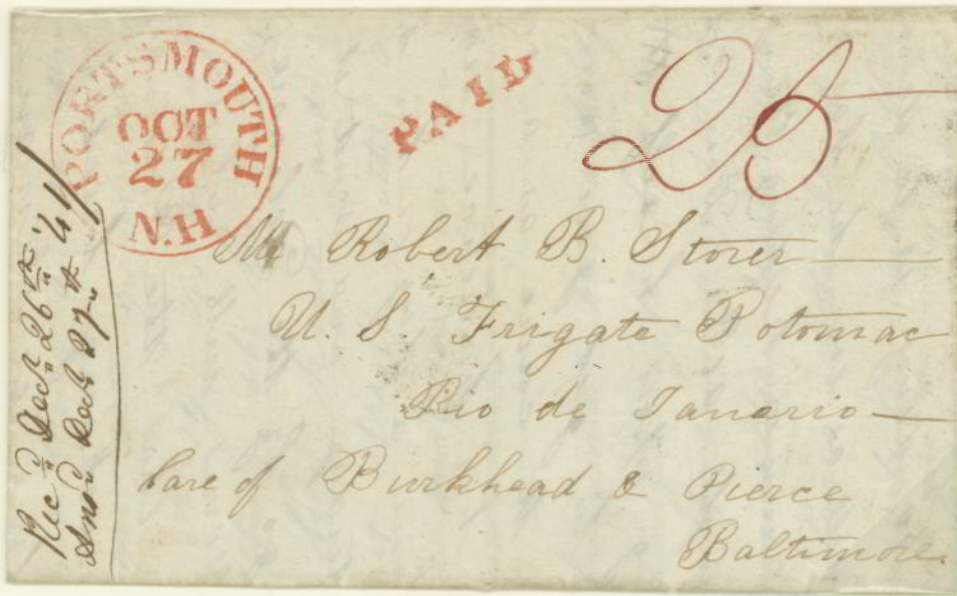 PORTSMOUTH
OCT
27
N.H
PAID
25
Mr Robert B. Storer
U. S. Frigate Potomac
Rio de Janario
Care of Burkhead & Pierce
Baltimore.
Rec'd Dec 26th '41
Ansd Dec 27th 41